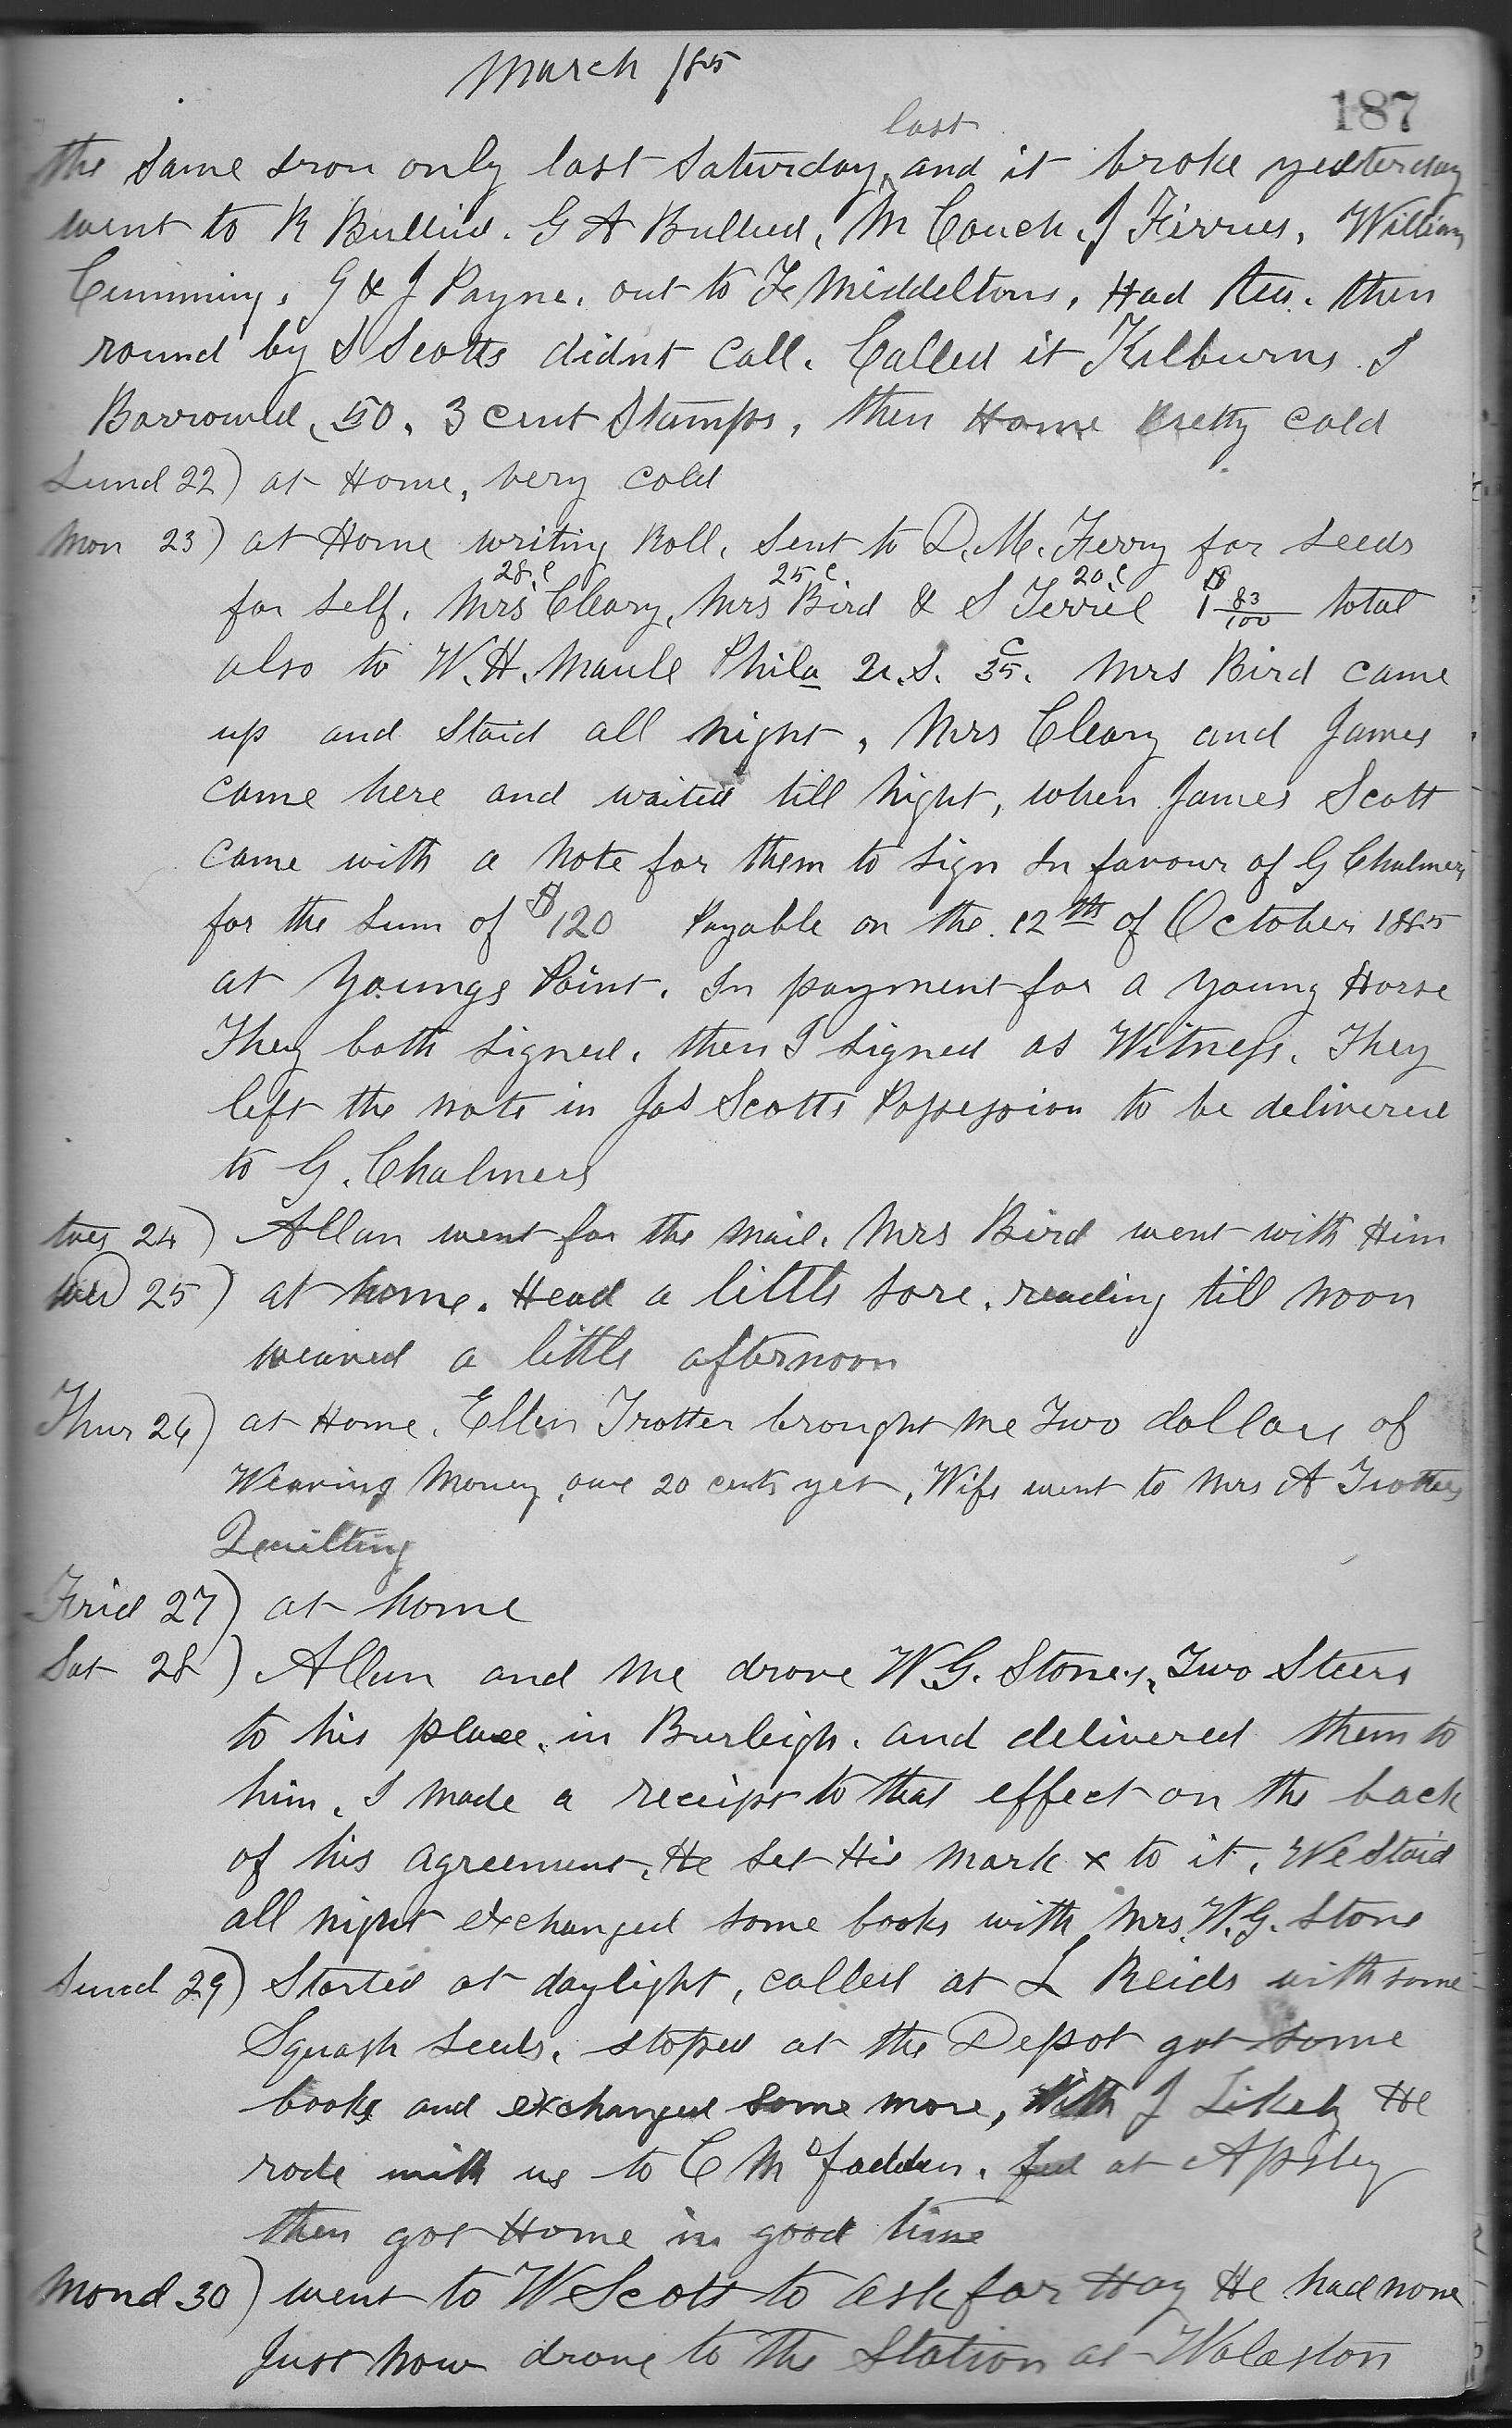 March /85
187
last
the Same Iron only last Saturday, and it broke yesterday
went to R Bullied. G A Bullied, M Couch. J Ferries, William
Cumming, G & J Payne, out to Middeltons, Had Tea. then
round by S Scotts didnt call. Called it Kilburns. I
Borrowed, 50, 3 cent Stamps, then Home Pretty cold
Sund 22) at Home, very cold
Mon 23) at Home writing Roll, Sent to D. M. Ferry for seeds
28.c 25 c 20 c
for self, Mrs Cleary, Mrs Bird & S Terriel $1 83/100 total
also to W. H. Maule Phila U.S. 35c. Mrs Bird came
up and Staid all night, Mrs Cleary and James
came here and waited till night, when James Scott
came with a Note for them to sign In favour of G Chalmers
for the Sum of $120 Payable on the 12th of October 1885
at Youngs Point. In payment for a Young Horse
They both signed, then I signed as Witness. They
left the note in Jas Scotts Possession to be delivered
to G. Chalmers
tues 24) Allan went for the Mail. Mrs Bird went with Him
Wed 25) at home. Head a little sore, reading till noon
weaved a little afternoon
Thur 26) at Home. Ellen Trotter brought me Two dollars of
Weaving Money, owe 20 cents yet, Wife went to Mrs A Trotters
Quilting
Frid 27) at home
Sat 28) Allan and me drove W. G. Stones, Two Steers
to his place, in Burleigh, and delivered them to
him, I made a receipt to that effect on the back
of his agreement, He Set His mark x to it, We Staid
all night exchanged some books with Mrs. W. G. Stone
Sund 29) Started at daylight, called at L Reids with some
Squash Seeds, stoped at the Depot got some
books and exchanged Some more, With J Likely He
rode with us to C McFadden, fed at Apsley
then got Home in good time
Mond 30) went to W Scott to ask for Hay He had none
Just Now drove to the Station at